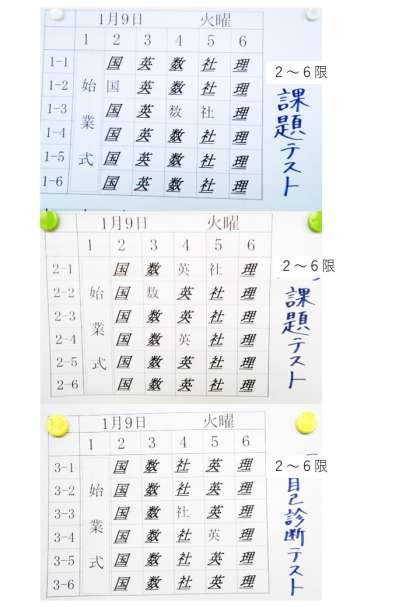 1月9日 火曜
1 2 3 4 5 6
1-1 国 英 数 社 理
1-2 始 国 英 数 社 理
1-3 業 国 英 数 社 理
1-4 国 英 数 社 理
1-5 式 国 英 数 社 理
1-6 国 英 数 社 理
2～6限
課題テスト
1月9日 火曜
1 2 3 4 5 6
2-1 国 数 英 社 理
2-2 始 国 数 英 社 理
2-3 業 国 数 英 社 理
2-4 国 数 英 社 理
2-5 式 国 数 英 社 理
2-6 国 数 英 社 理
2～6限
課題テスト
1月9日 火曜
1 2 3 4 5 6
3-1 国 数 社 英 理
3-2 始 国 数 社 英 理
3-3 国 数 社 英 理
3-4 業 国 数 社 英 理
3-5 式 国 数 社 英 理
3-6 国 数 社 英 理
2～6限
自己診断テスト